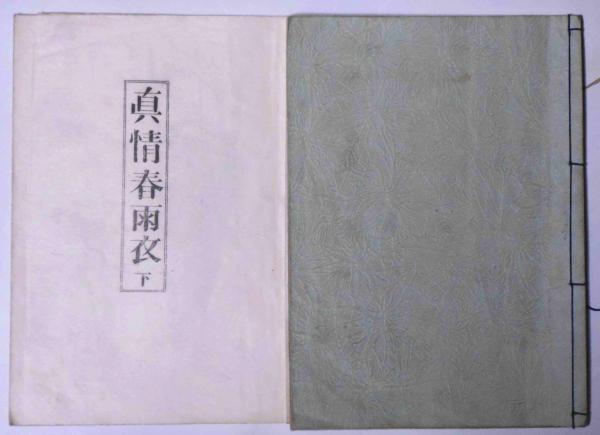 真情春雨衣下